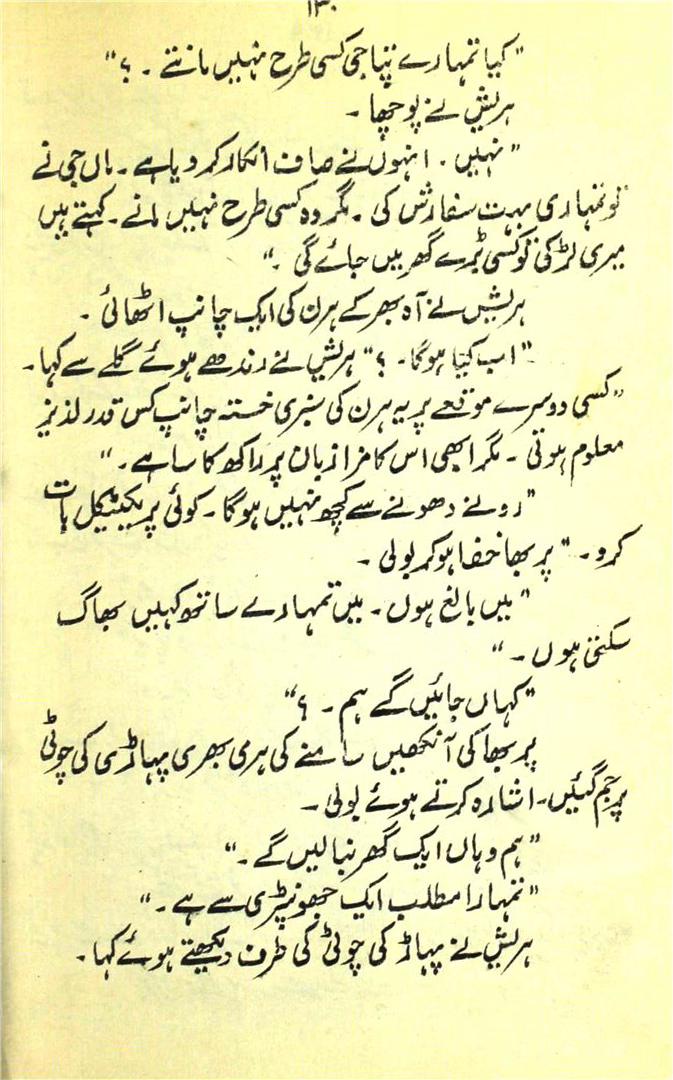 ۱۳۰
"کیا تمہارے پتا جی کسی طرح نہیں مانتے ۔ ؟"
ہریش نے پوچھا ۔
"نہیں ۔ انہوں نے صاف انکار کر دیا ہے ۔ ماں جی نے
تو تمہاری بہت سفارش کی ۔ مگر وہ کسی طرح نہیں مانے ۔ کہتے ہیں
میری لڑکی تو کسی بڑے گھر میں جائے گی ۔"
ہریش نے آہ بھر کے ہرن کی ایک چانپ اٹھائی ۔
"اب کیا ہوگا ۔ ؟" ہریش نے رندھے ہوئے گلے سے کہا ۔
"کسی دوسرے موقعے پر یہ ہرن کی سنہری خستہ چانپ کس قدر لذیز
معلوم ہوتی ۔ مگر ابھی اس کا مزا زبان پر راکھ کا سا ہے ۔"
"رونے دھونے سے کچھ نہیں ہوگا ۔ کوئی پریکٹیکل بات
کرو ۔" پربھا خفا ہو کر بولی ۔
"میں بالغ ہوں ۔ میں تمہارے ساتھ کہیں بھاگ
سکتی ہوں ۔"
"کہاں جائیں گے ہم ۔ ؟"
پربھا کی آنکھیں سامنے کی ہری بھری پہاڑی کی چوٹی
پر جم گئیں ۔ اشارہ کرتے ہوئے بولی ۔
"ہم وہاں ایک گھر بنا لیں گے ۔"
"تمہارا مطلب ایک جھونپڑی سے ہے ۔"
ہریش نے پہاڑ کی چوٹی کی طرف دیکھتے ہوئے کہا ۔